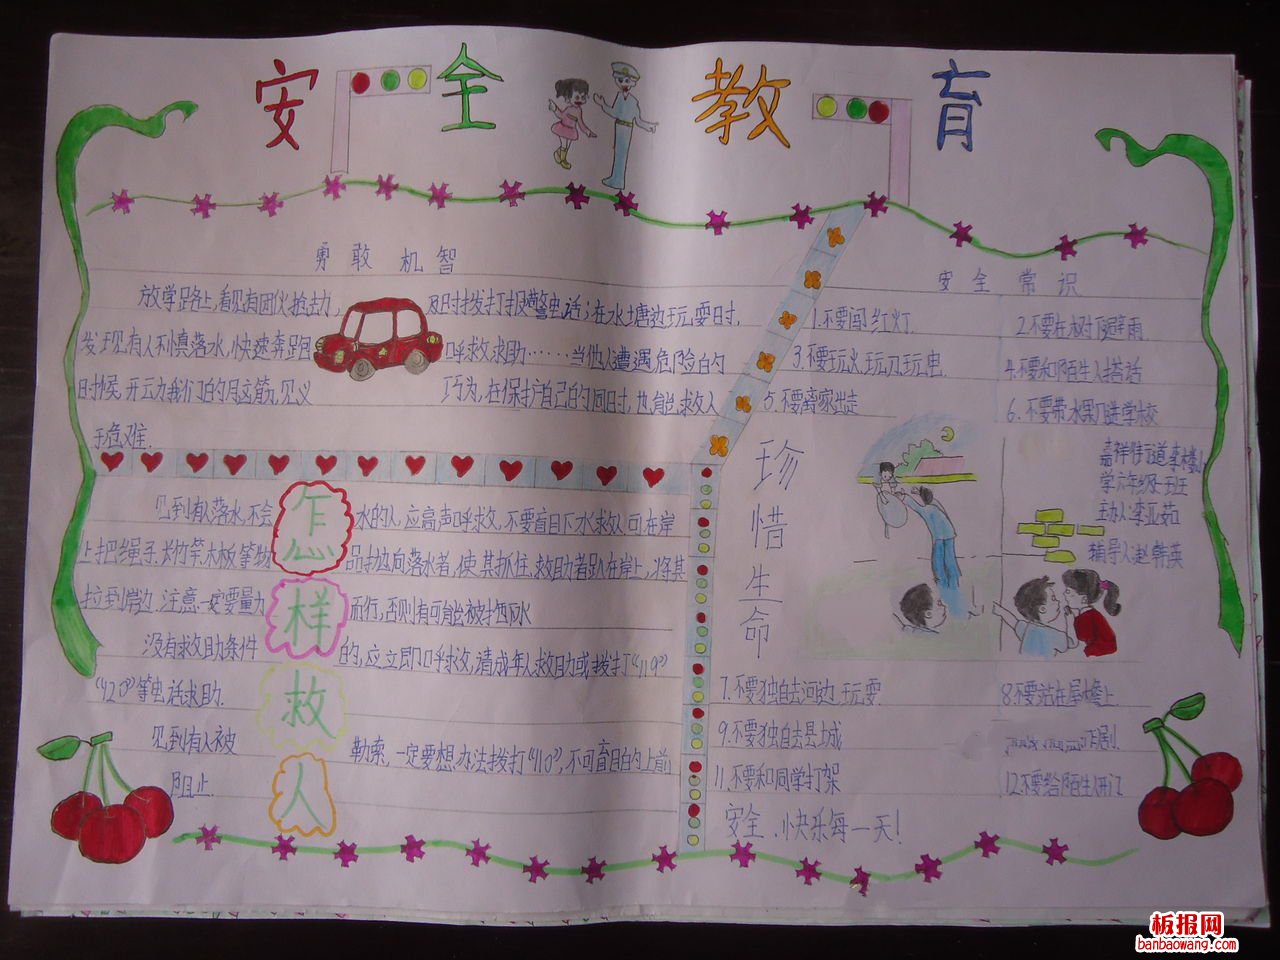 安全教育
勇敢机智
放学路上,看见有团伙抢劫,及时拨打报警电话;在水塘边玩耍时,
发现有人不慎落水,快速奔跑呼救求助……当他人遭遇危险的
时候,开动我们的脑筋,见义巧为,在保护自己的同时,也能救人
于危难.
怎样救人
见到有人落水,不会水的人,应高声呼救,不要盲目下水救人可在岸
上把绳子.长竹竿木板等物品抛向落水者,使其抓住,救助者趴在岸上,将其
拉到岸边.注意一定要量力而行,否则有可能被拖下水
没有救助条件的,应立即呼救,请成年人救助或拨打“119”
“120”等电话求助.
见到有人被勒索,一定要想办法拨打“110”,不可盲目的上前
阻止.
安全常识
1.不要闯红灯.
2.不要在树下避雨
3.不要玩火.玩刀玩电.
4.不要和陌生人搭话
5.不要离家出走
6.不要带水果刀进学校
珍惜生命
嘉祥街道李楼小
学六年级五班
主办:李亚茹
辅导人:赵韩英
7.不要独自去河边玩耍.
8.不要站在屋檐上.
9.不要独自去县城
作剧.
11.不要和同学打架
12.不要给陌生人开门
安全.快乐每一天!
板报网
banbaowang.com